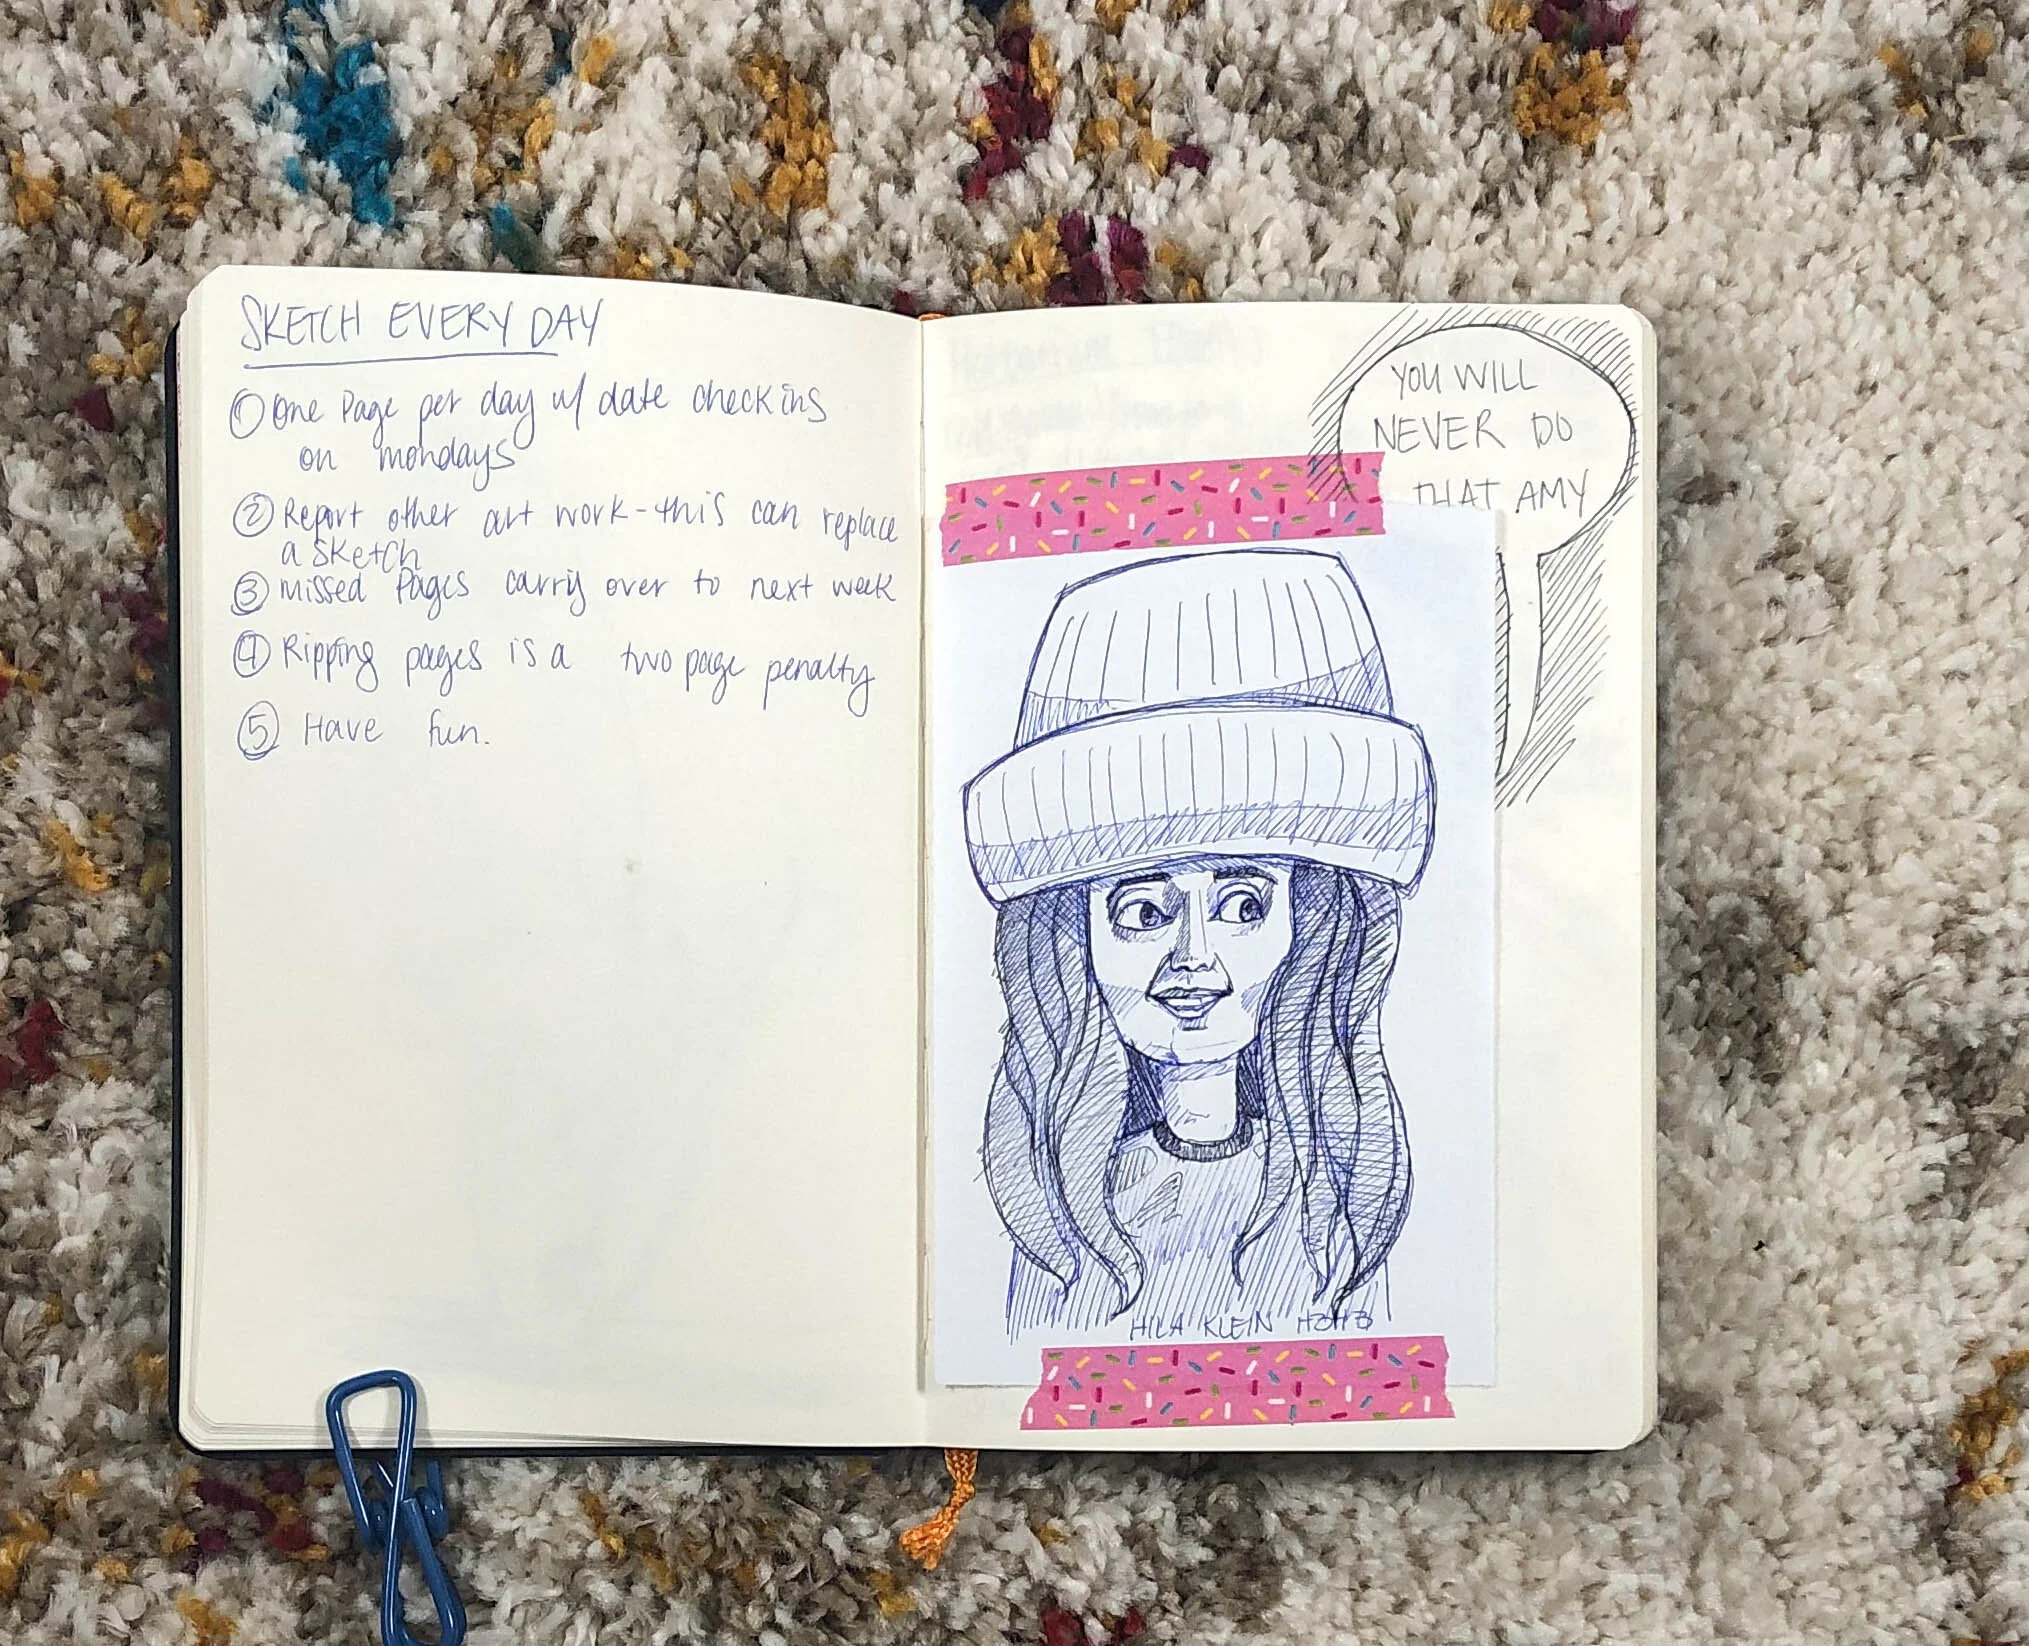 SKETCH EVERY DAY
① One Page per day w/ date check ins
on mondays
② Report other art work - this can replace
a sketch
③ Missed Pages carry over to next week
④ Ripping pages is a two page penalty
⑤ Have fun.
YOU WILL
NEVER DO
THAT AMY
HILA KLEIN H3H3